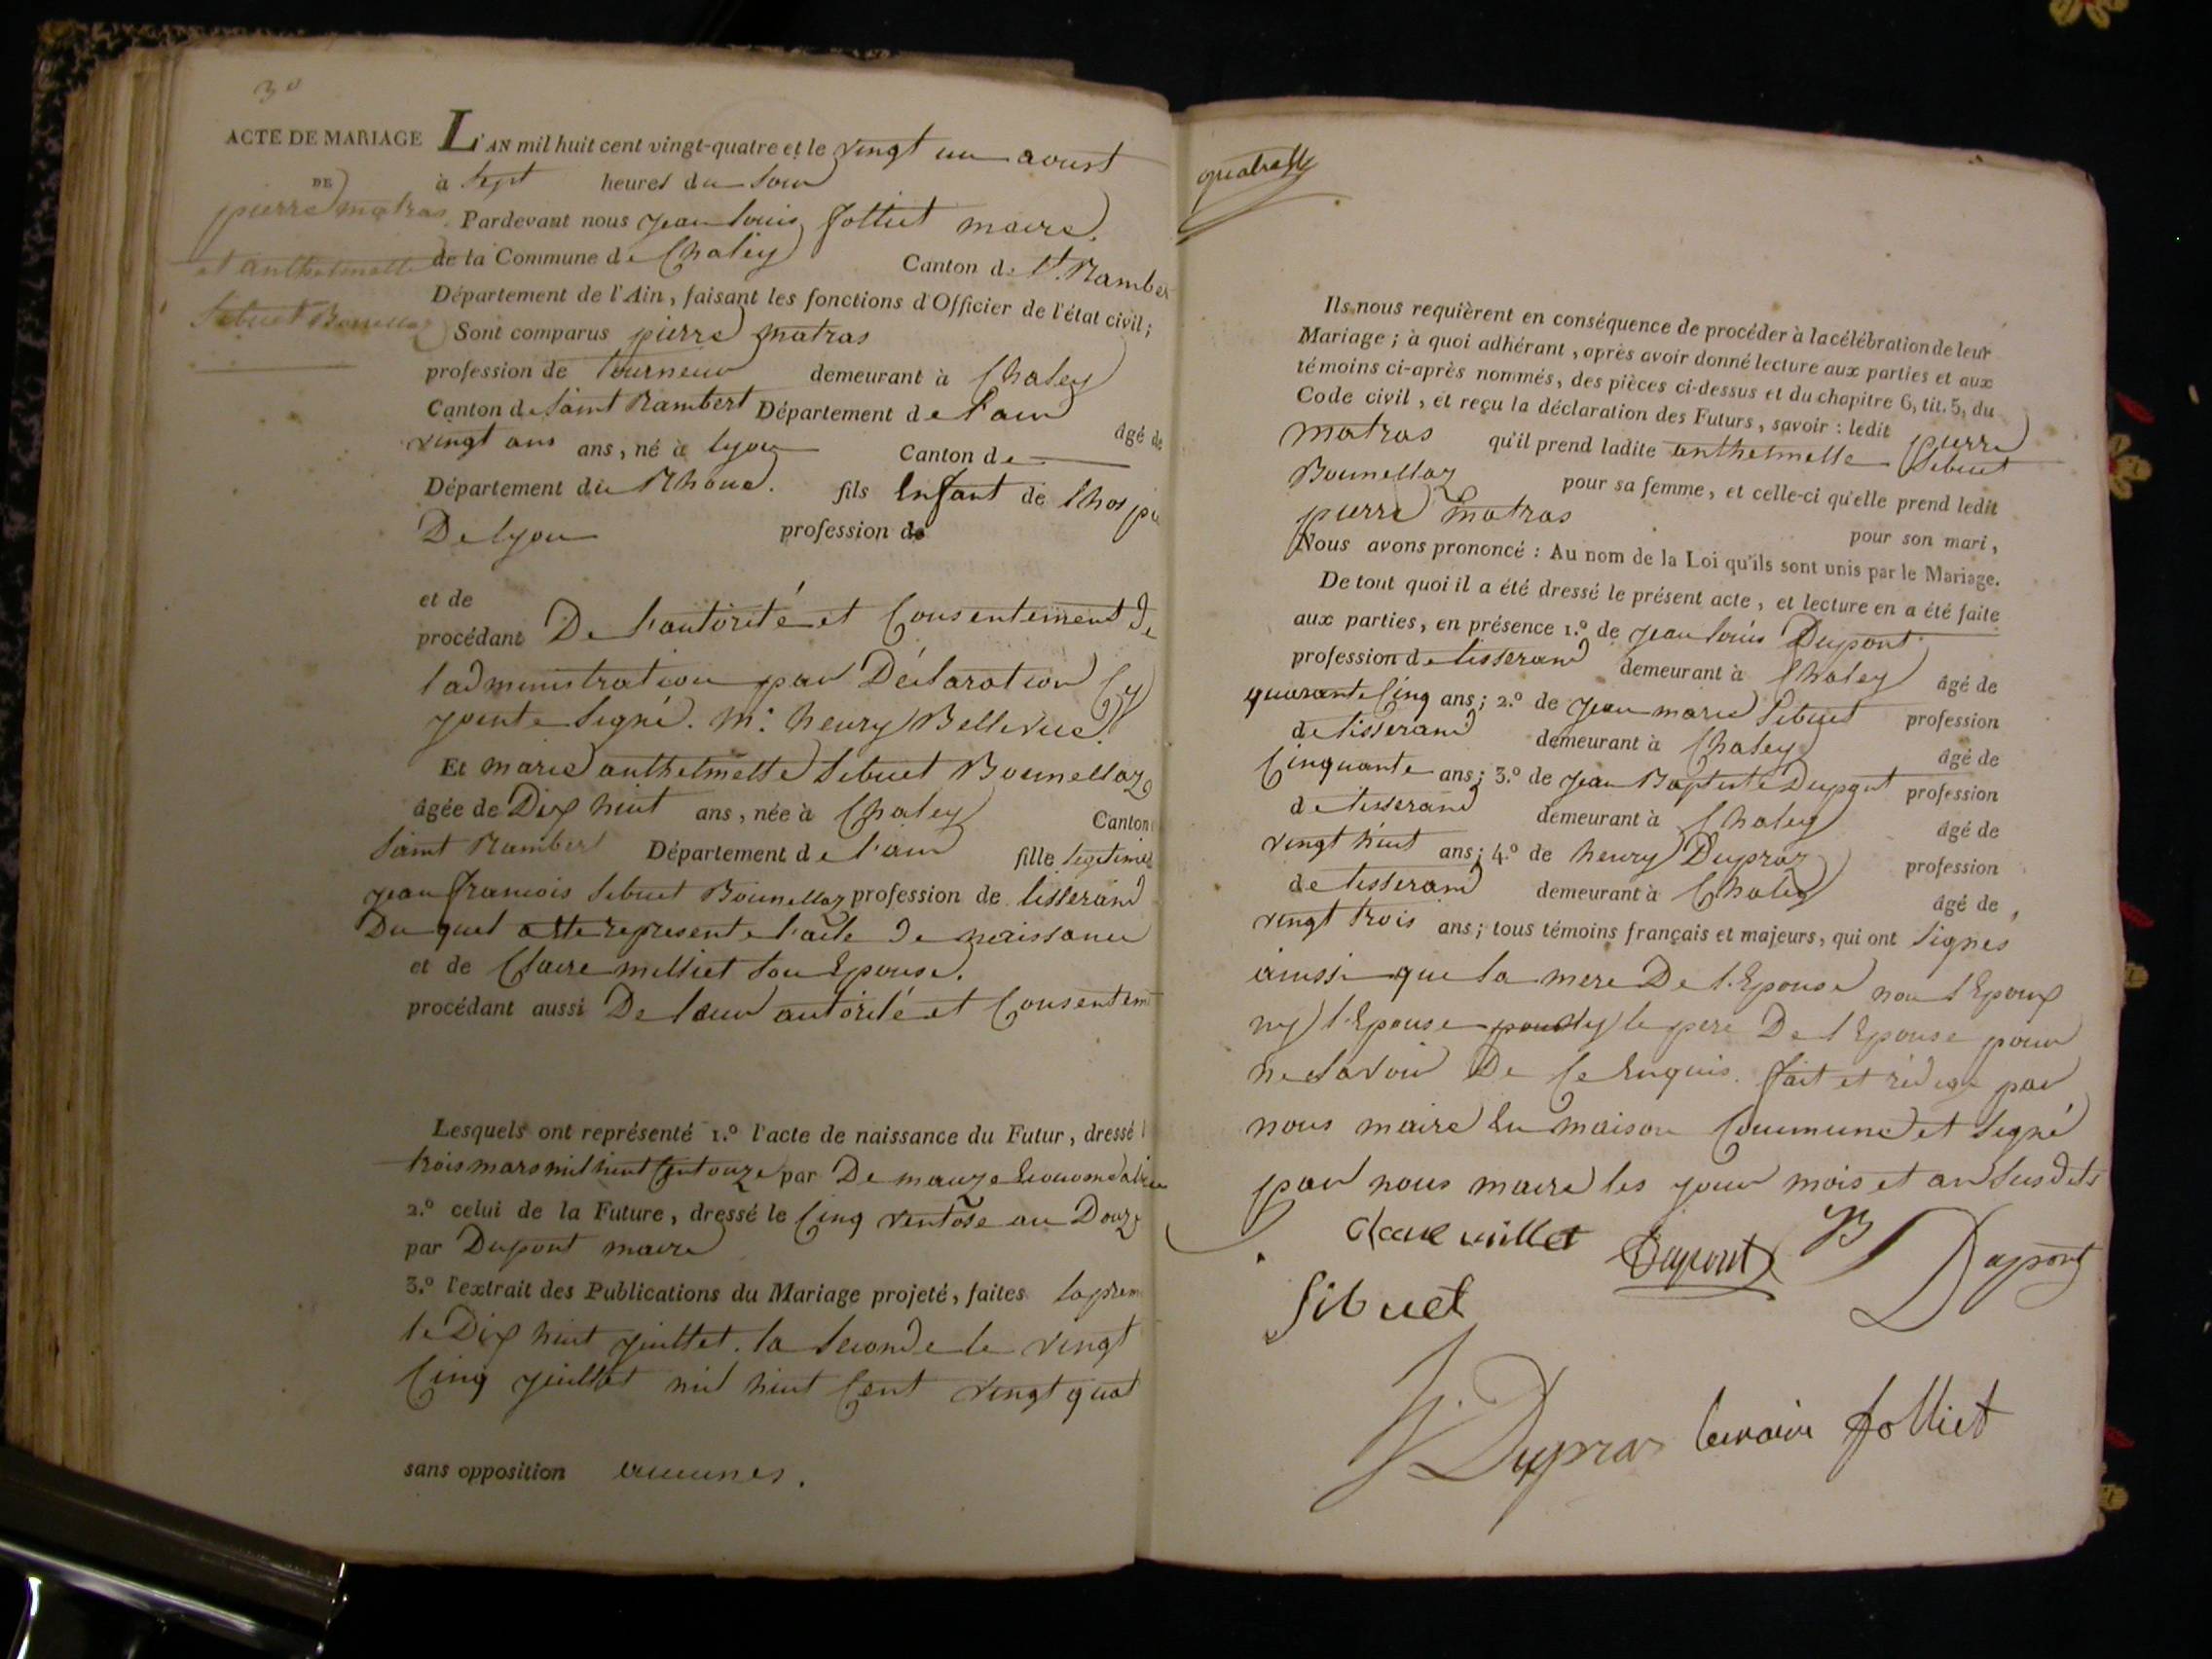 3°
ACTE DE MARIAGE
DE
pierre matras
et anthelmette
Sibuet Bounellaz
L'AN mil huit cent vingt-quatre et le vingt un aoust
à Sept heures du Soir
Pardevant nous jean louis jolliet maire
de la Commune de Chaley Canton de St. Ramber
Département de l'Ain, faisant les fonctions d'Officier de l'état civil;
Sont comparus pierre matras
profession de tourneur demeurant à Chaley
Canton de Saint Rambert Département de l'ain âgé de
vingt ans ans, né à lyon Canton de
Département du Rhone. fils Enfant de lhospi
De lyon profession de
et de
procédant De l'autorité et Consentement de
ladministration par Déclaration Cy
jointe Signé. Mr. henry Bellevue.
Et marie anthelmette Sibuet Bounellaz
âgée de Dix huit ans, née à Chaley Canton
Saint Rambert Département de l'ain fille legitime
jean francois Sibuet Bounellaz profession de tisserand
Du quel acte represente l'acte de naissance
et de Claire milliet Son Epouse.
procédant aussi De leur autorité et Consentem
Lesquels ont représenté 1.° l'acte de naissance du Futur, dressé l
trois mars mil huit Cent onze par De
2.° celui de la Future, dressé le Cinq ventose an Douze
par Dupont maire
3.° l'extrait des Publications du Mariage projeté, faites la prem
le Dix huit juillet. la Seconde le vingt
Cinq juillet mil huit Cent vingt quat
sans opposition aucunes.
quatre
Ils nous requièrent en conséquence de procéder à la célébration de leur
Mariage; à quoi adhérant, après avoir donné lecture aux parties et aux
témoins ci-après nommés, des pièces ci-dessus et du chapitre 6, tit. 5, du
Code civil, et reçu la déclaration des Futurs, savoir : ledit pierre
matras qu'il prend ladite anthelmette Sibuet
Bounellaz pour sa femme, et celle-ci qu'elle prend ledit
pierre matras pour son mari,
Nous avons prononcé : Au nom de la Loi qu'ils sont unis par le Mariage.
De tout quoi il a été dressé le présent acte, et lecture en a été faite
aux parties, en présence 1.° de jean louis Dupont
profession de tisserand demeurant à Chaley âgé de
quarante Cinq ans; 2.° de jean marie Sibuet profession
de tisserand demeurant à Chaley âgé de
Cinquante ans; 3.° de jean Baptiste Dupont profession
de tisserand demeurant à Chaley âgé de
vingt huit ans; 4.° de henry Dupraz profession
de tisserand demeurant à Chaley âgé de
vingt trois ans; tous témoins français et majeurs, qui ont Signés
ainssi que la mere De l'Epouse non l'Epoux
ny l'Epouse ny le pere De l'Epouse pour
ne Savoir De Ce Enquis. fait et rédigé par
nous maire En maison Commune et Signé
par nous maire les jour mois et an Susdits
Dupont B Dupont
Sibuet
Dupraz le maire jolliet